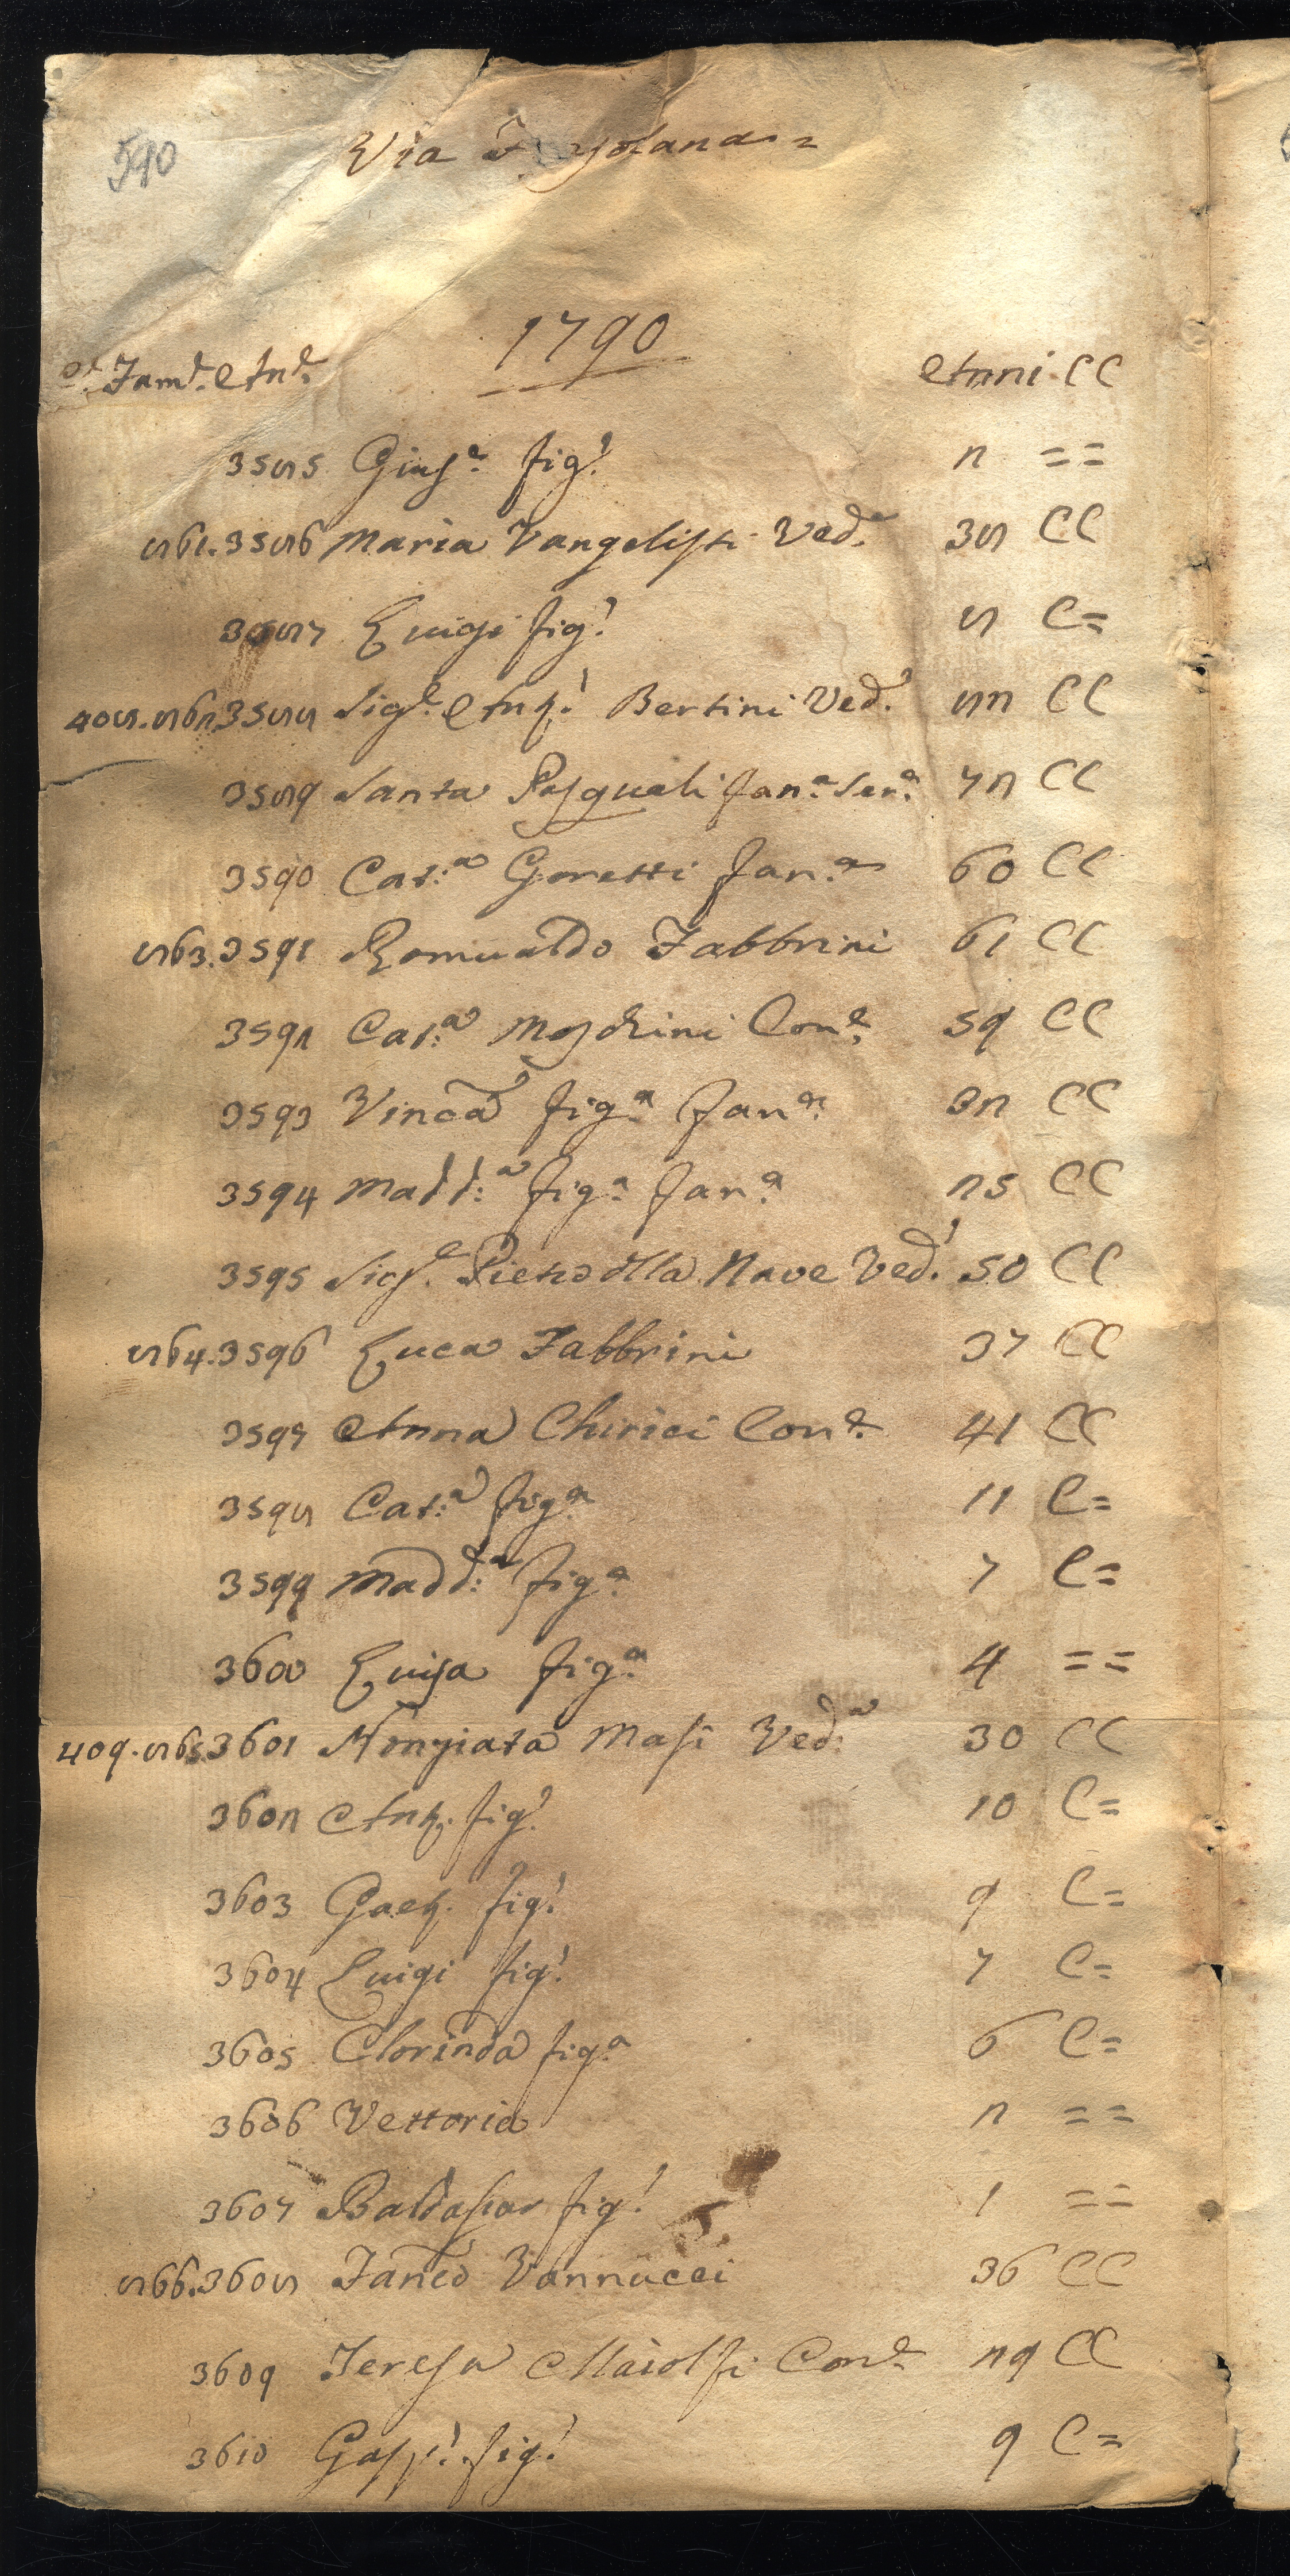 590
Via
1790
Fam.e An.e Anni CC
3585 Gius.e fig.o 2 ==
861.3586 Maria Vangelisti Ved.a 38 CC
3587 Luigi fig.o 8 C=
408.862.3588 Sig.e Ant.o Bertini Ved.o 82 CC
3589 Santa Pasquali fan.a Ser.a 72 CC
3590 Cat.a Goretti fan.a 60 CC
863.3591 Romualdo Fabbrini 61 CC
3592 Cat.a Moschini Con.e 59 CC
3593 Vinc.a fig.a fan.a 32 CC
3594 Madd.a fig.a fan.a 25 CC
3595 Sig.e Pietro dlla Nave Ved.o 50 CC
864.3596 Luca Fabbrini 37 CC
3597 Anna Chirici Con.e 41 CC
3598 Cat.a fig.a 11 C=
3599 Madd.a fig.a 7 C=
3600 Luisa fig.a 4 ==
409.865.3601 Nonziata Masi Ved.a 30 CC
3602 Ant.o fig.o 10 C=
3603 Gaet.o fig.o 9 C=
3604 Luigi fig.o 7 C=
3605 Clorinda fig.a 6 C=
3606 Vettoria 2 ==
3607 Baldassar fig.o 1 ==
866.3608 Fran.co Vannucci 36 CC
3609 Teresa Maiolfi Con.e 29 CC
3610 Gasp.o fig.o 9 C=